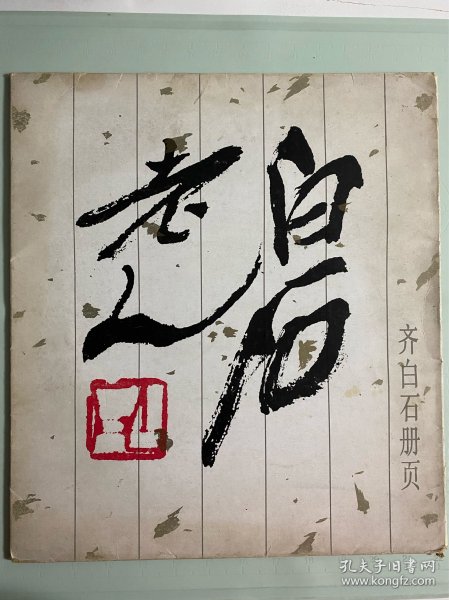 白石
老人
齐白石册页
孔夫子旧书网
www.kongfz.com